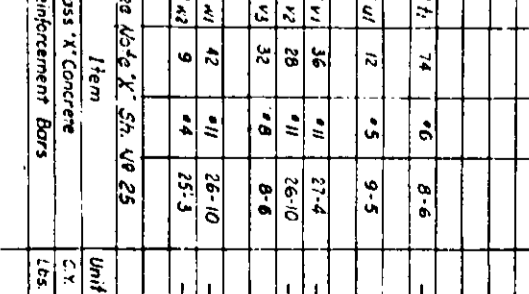 t1 74 #6 8-6 -
u1 12 #5 9-5
v1 36 #11 27-4 -
v2 28 #11 26-10 -
v3 32 #8 8-6 -
w1 42 #11 26-10 -
w2 9 #4 25-3 -
ee Note "X" Sh. No 25
Item Unit
ass "X" Concrete C.Y.
inforcement Bars Lbs.